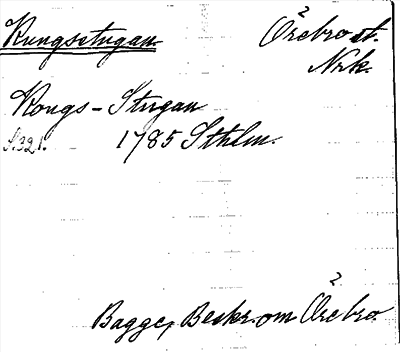 Kungsstugan
Örebro st.
Nrk.
Kongs-Stugan
S. 321.
1785 Sthlm.
Bagge, Beskr. om Örebro